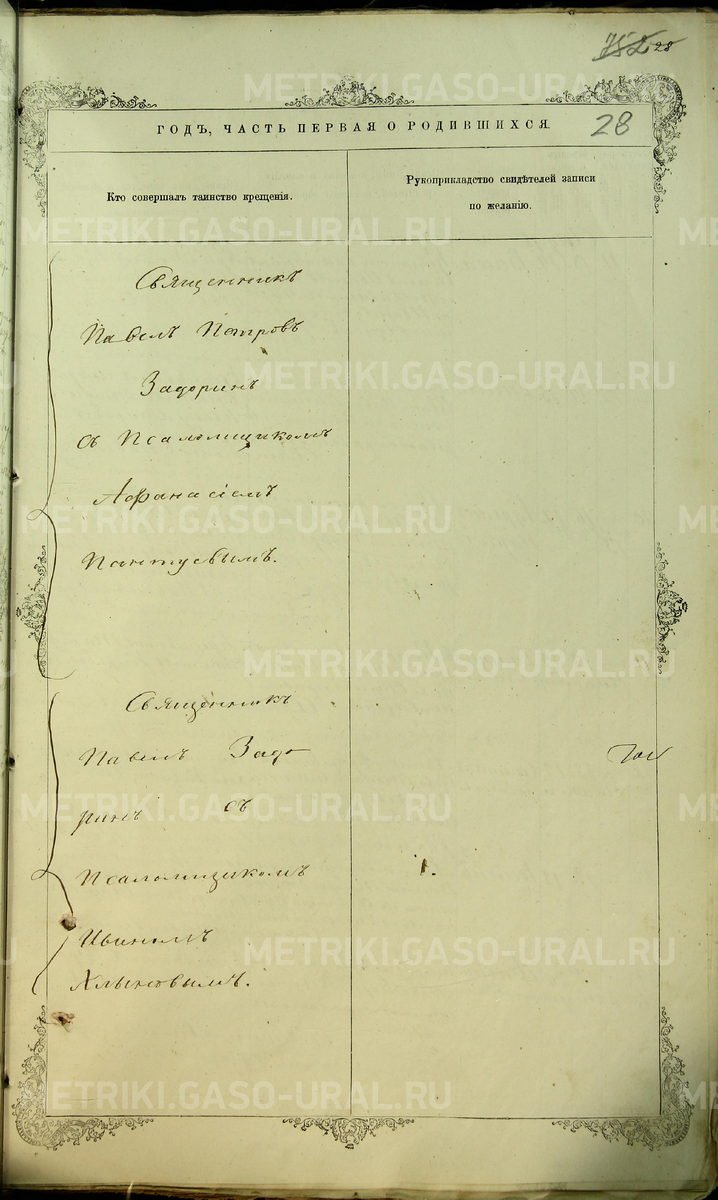 28
ГОДЪ, ЧАСТЬ ПЕРВАЯ О РОДИВШИХСЯ.
28
Кто совершалъ таинство крещенія.
Рукоприкладство свидѣтелей записи
по желанію.
Священникъ
Павелъ Петровъ
Задоринъ
съ Псаломщикомъ
Афанасіемъ
Пантусвымъ.
Священникъ
Павелъ Задо
ринъ съ
Псаломщикомъ
Хлыновымъ.
METRIKI.GASO-URAL.RU